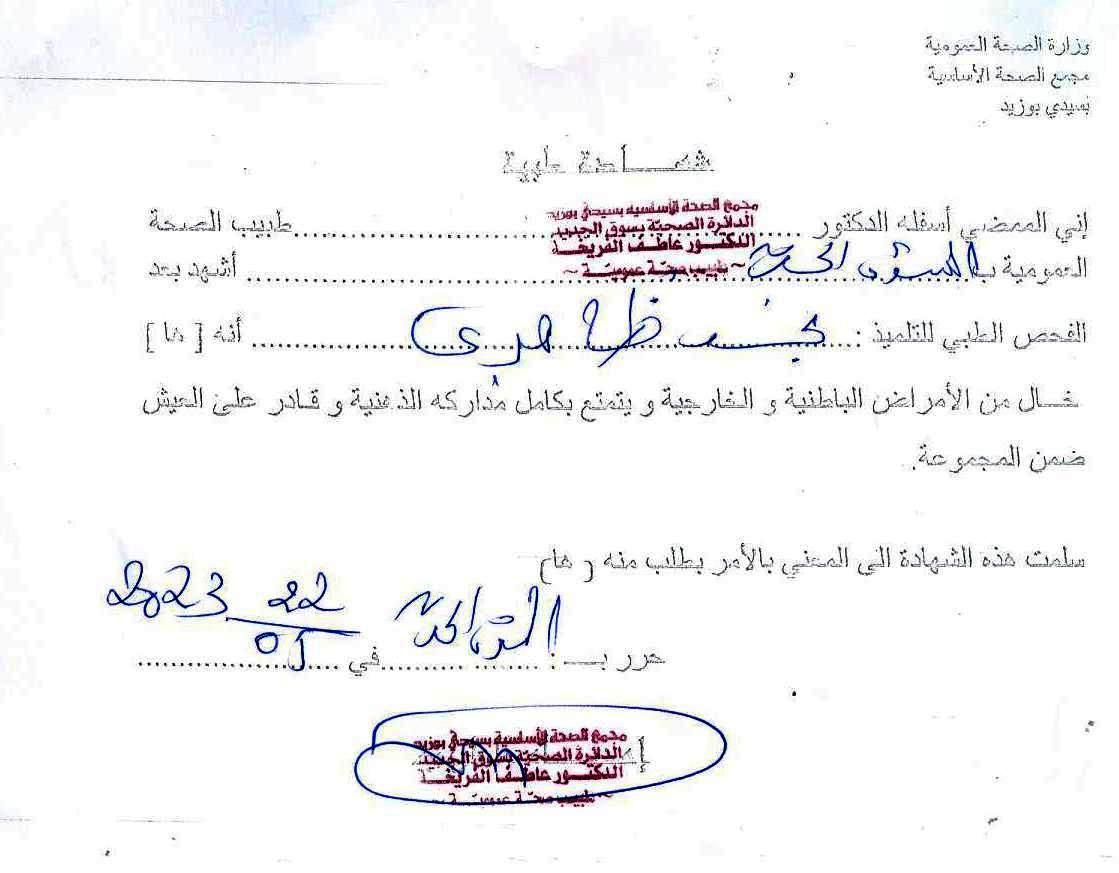 وزارة الصحة العمومية
مجمع الصحة الأساسية
بسيدي بوزيد
شهـــادة طبية
إني الممضي أسفله الدكتور ........ طبيب الصحة
مجمع الصحة الأساسية بسيدي بوزيد
الدائرة الصحيّة بسوق الجديد
الدكتور عاطف الفريخة
~ طبيب صحّة عموميّة ~
العمومية بـ ........ أشهد بعد
الفحص الطبي للتلميذ : ........ أنه [ ها ]
خـــال من الأمراض الباطنية و الخارجية و يتمتع بكامل مداركه الذهنية و قادر على العيش
ضمن المجموعة.
سلمت هذه الشهادة الى المعني بالأمر بطلب منه [ ها]
حرر بـــ : ........ في 22 05 2023
مجمع الصحة الأساسية بسيدي بوزيد
الدائرة الصحيّة بسوق الجديد
الدكتور عاطف الفريخة
~ طبيب صحّة عموميّة ~